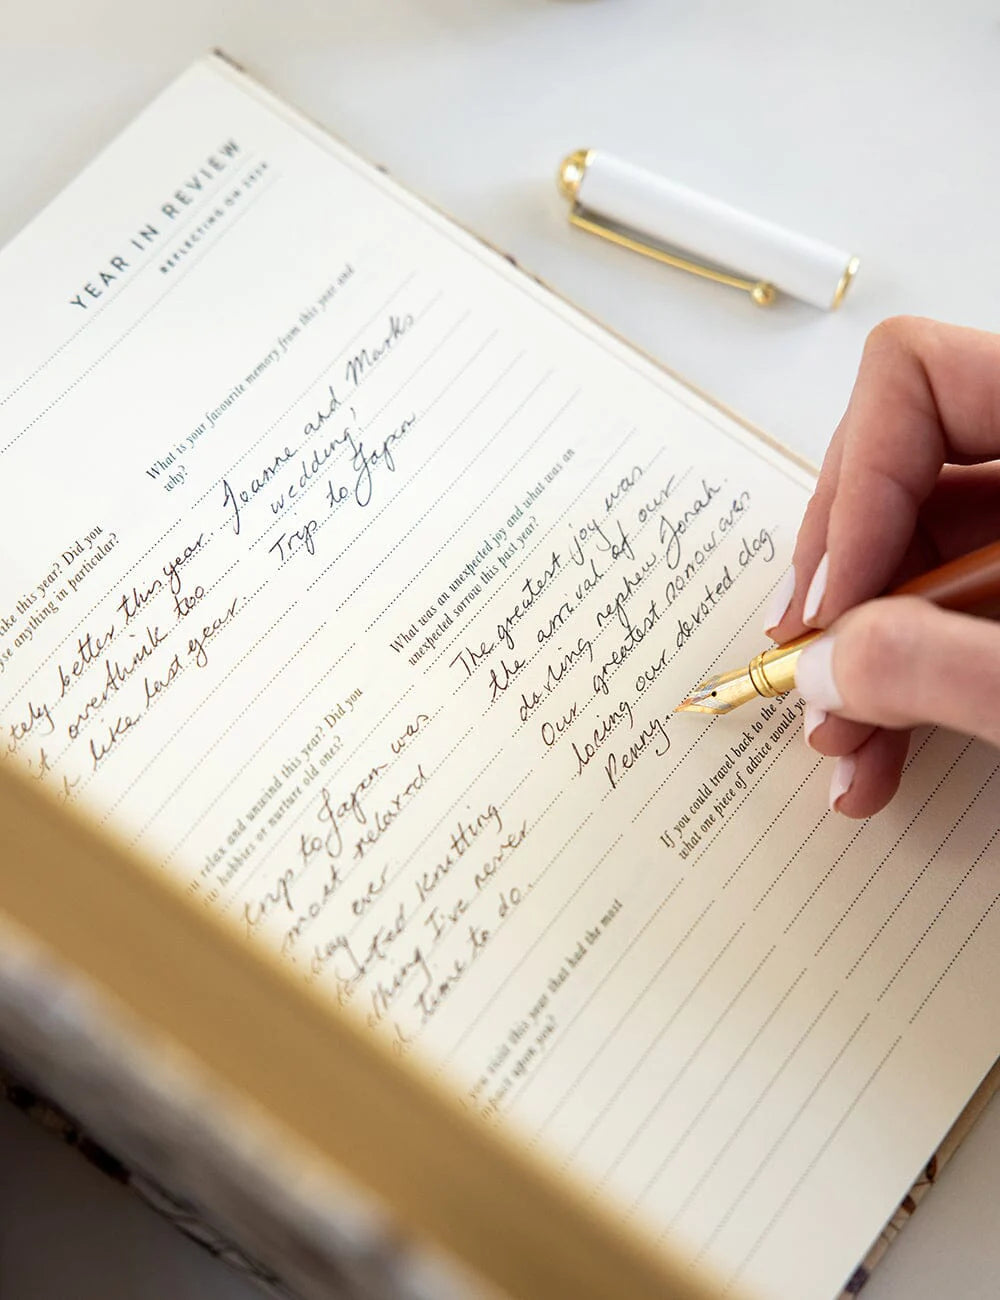 YEAR IN REVIEW
REFLECTING ON
What is your favourite memory from this year and
why?
Joanne and Marks
wedding!
Trip to Japan
like this year? Did you
anything in particular?
better this year.
overthink too
like last year.
What was an unexpected joy and what was an
unexpected sorrow this past year?
The greatest joy was
the arrival of our
darling nephew Jonah.
Our greatest sorrow was
losing our devoted dog
Penny.
relax and unwind this year? Did you
hobbies or nurture old ones?
trip to Japan was
most relaxed
day ever
started knitting
thing I've never
time to do.
If you could travel back to the
what one piece of advice would yo
you visit this year that had the most
upon you?